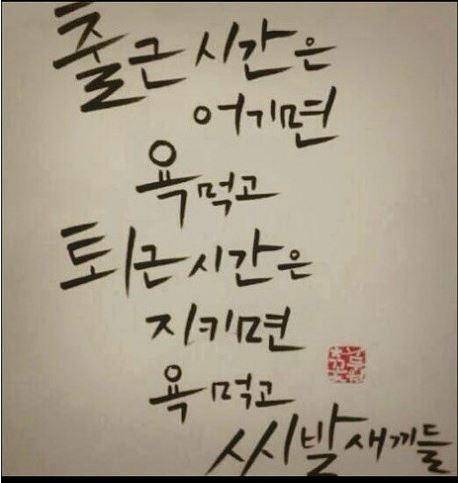 출근시간은
어기면
욕먹고
퇴근시간은
지키면
욕먹고
씨발새끼들